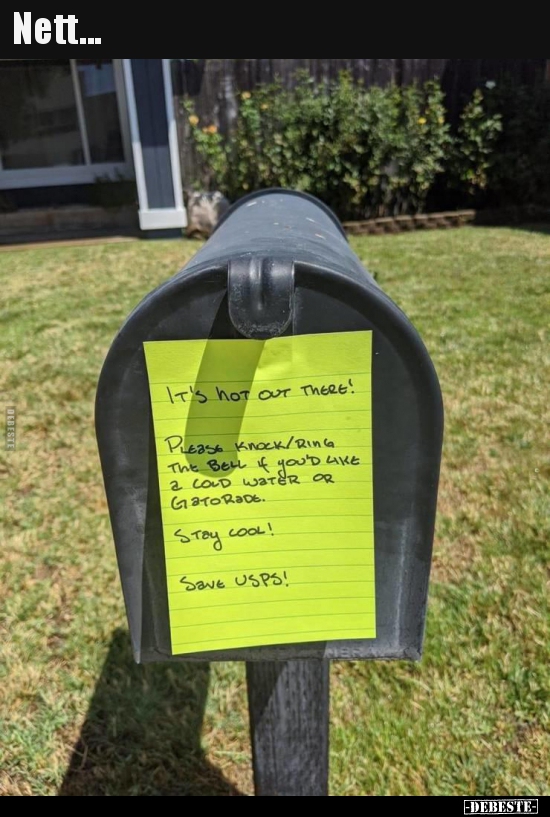 Nett...
IT'S HOT OUT THERE!
PLEASE KNOCK/RING
THE BELL if you'D LIKE
a COLD WATER OR
GATORADE.
STay COOL!
Save USPS!
DEBESTE
-DEBESTE-